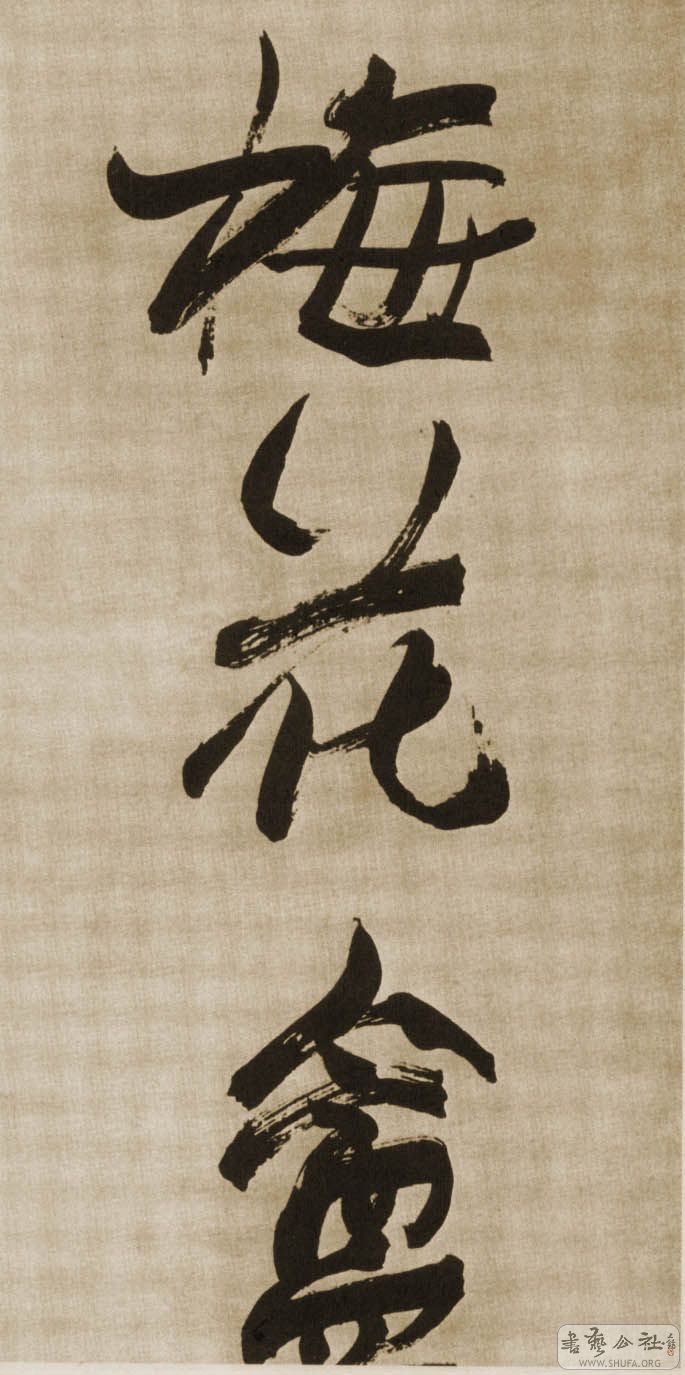 梅花盦
書藝公社
WWW.SHUFA.ORG